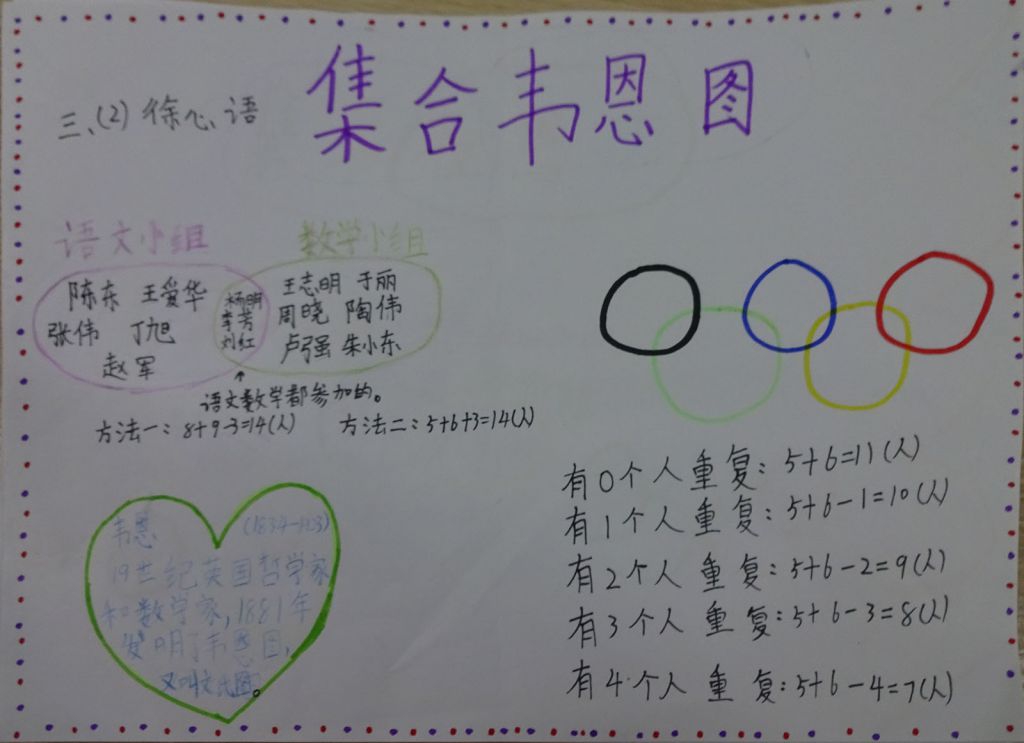 集合韦恩图
三、(2) 徐心语
语文小组
数学小组
陈东 王爱华
张伟 丁旭
赵军
杨明
李芳
刘红
王志明 于丽
周晓 陶伟
卢强 朱小东
↑
语文数学都参加的。
方法一：8+9-3=14(人) 方法二：5+6+3=14(人)
韦恩 (1834-1923)
19世纪英国哲学家
和数学家,1881年
发明了韦恩图,
又叫文氏图。
有0个人重复：5+6=11(人)
有1个人重复：5+6-1=10(人)
有2个人重复：5+6-2=9(人)
有3个人重复：5+6-3=8(人)
有4个人重复：5+6-4=7(人)